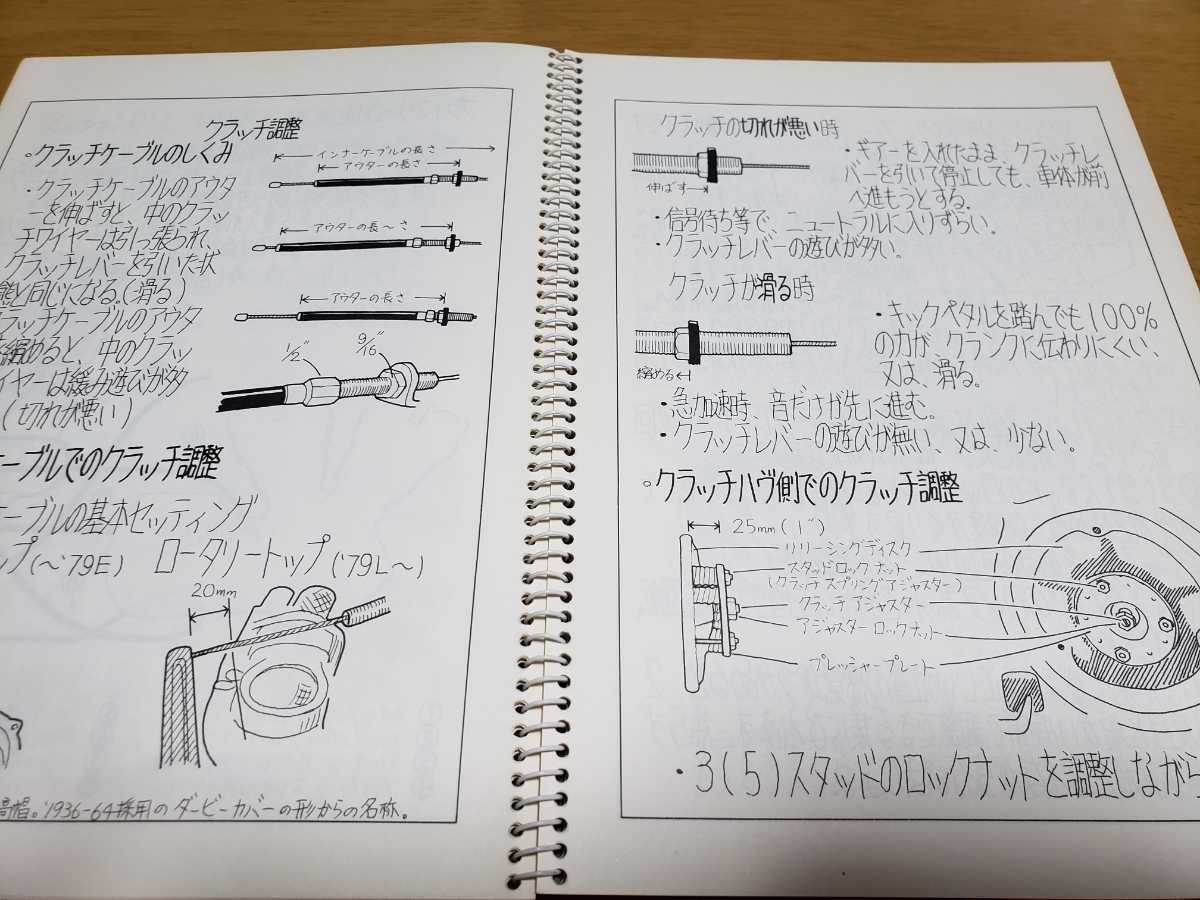 クラッチ調整
○クラッチケーブルのしくみ
・クラッチケーブルのアウタ
ーを伸ばすと、中のクラッ
チワイヤーは引っ張られ、
クラッチレバーを引いた状
態と同じになる。(滑る)
クラッチケーブルのアウタ
緩めると、中のクラッ
イヤーは緩み遊びが多
(切れが悪い)
インナーケーブルの長さ
アウターの長さ
アウターの長〜さ
アウターの長さ
1/2"
9/16"
ケーブルでのクラッチ調整
ケーブルの基本セッティング
ップ(〜'79E) ロータリートップ('79L〜)
20mm
高帽。'1936-64採用のダービーカバーの形からの名称。
クラッチの切れが悪い時
伸ばす
・ギアーを入れたまま、クラッチレ
バーを引いて停止しても、車体が前
へ進もうとする。
・信号待ち等で、ニュートラルに入りずらい。
・クラッチレバーの遊びが多い。
クラッチが滑る時
緩める
・キックペタルを踏んでも100%
の力が、クランクに伝わりにくい、
又は、滑る。
・急加速時、音だけが先に進む。
・クラッチレバーの遊びが無い、又は、少ない。
○クラッチハヴ側でのクラッチ調整
25mm(1")
リリーシングディスク
スタッドロックナット
(クラッチスプリングアジャスター)
クラッチアジャスター
アジャスターロックナット
プレッシャープレート
・3(5)スタッドのロックナットを調整しながら